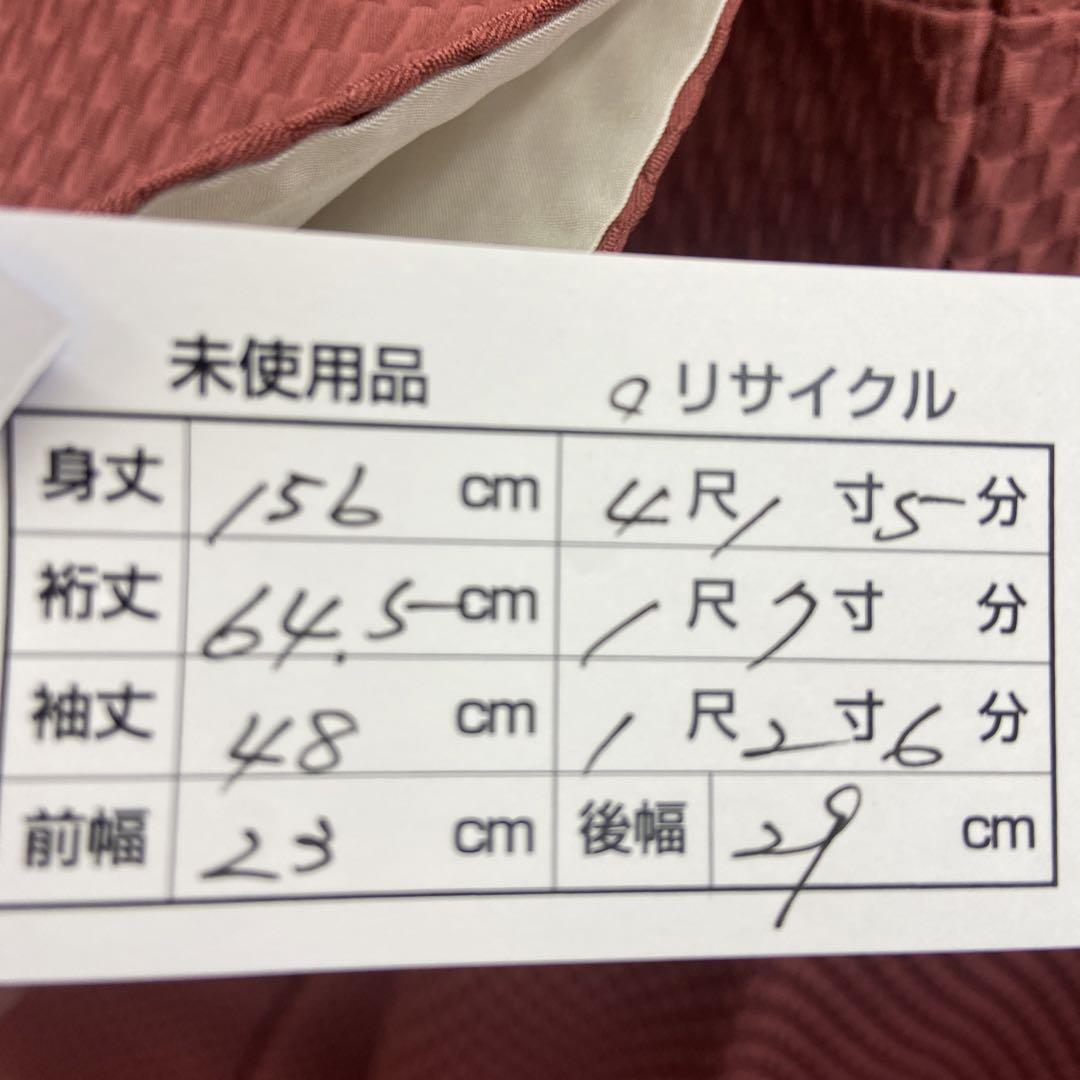 未使用品 o リサイクル
身丈 156 cm 4尺1寸5分
裄丈 64.5 cm 1尺7寸 分
袖丈 48 cm 1尺2寸6分
前幅 23 cm 後幅 29 cm